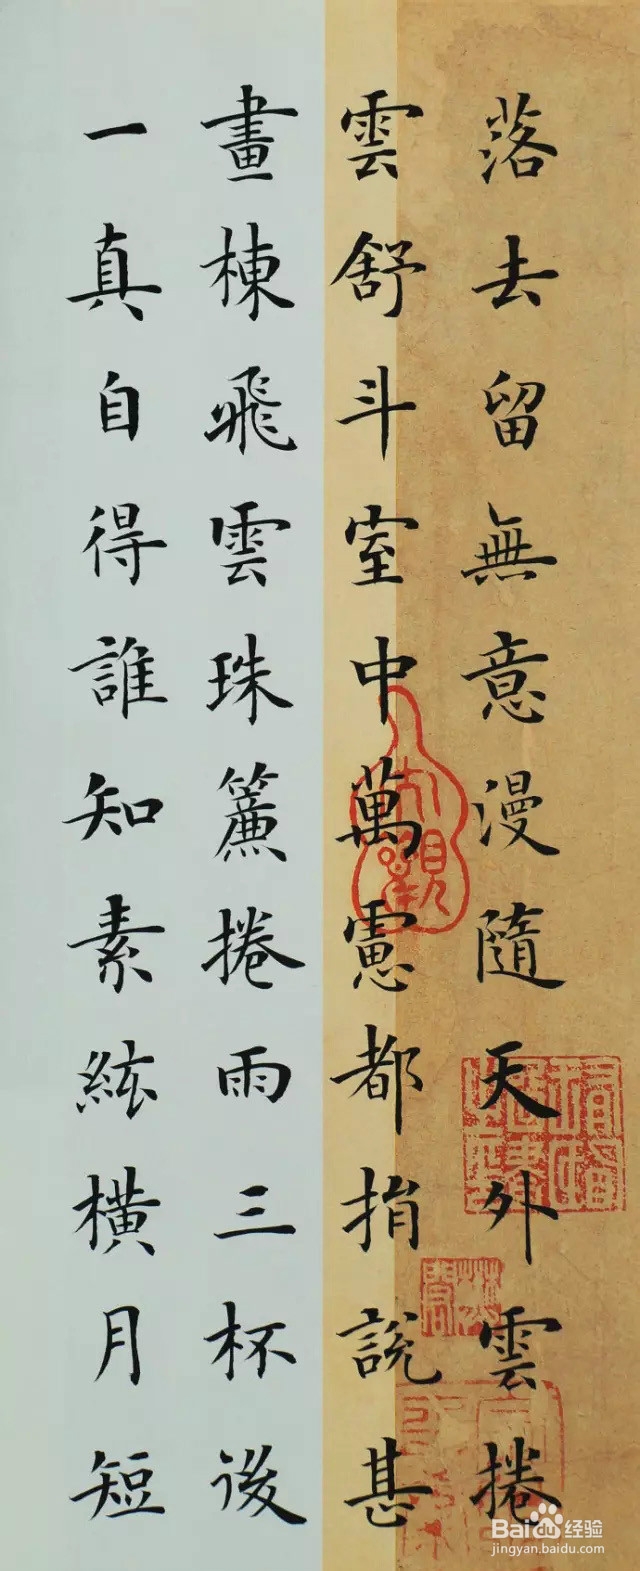 落去留無意漫隨天外雲捲
雲舒斗室中萬慮都捐說甚
畫棟飛雲珠簾捲雨三杯後
一真自得誰知素絃橫月短
Baidu经验
jingyan.baidu.com